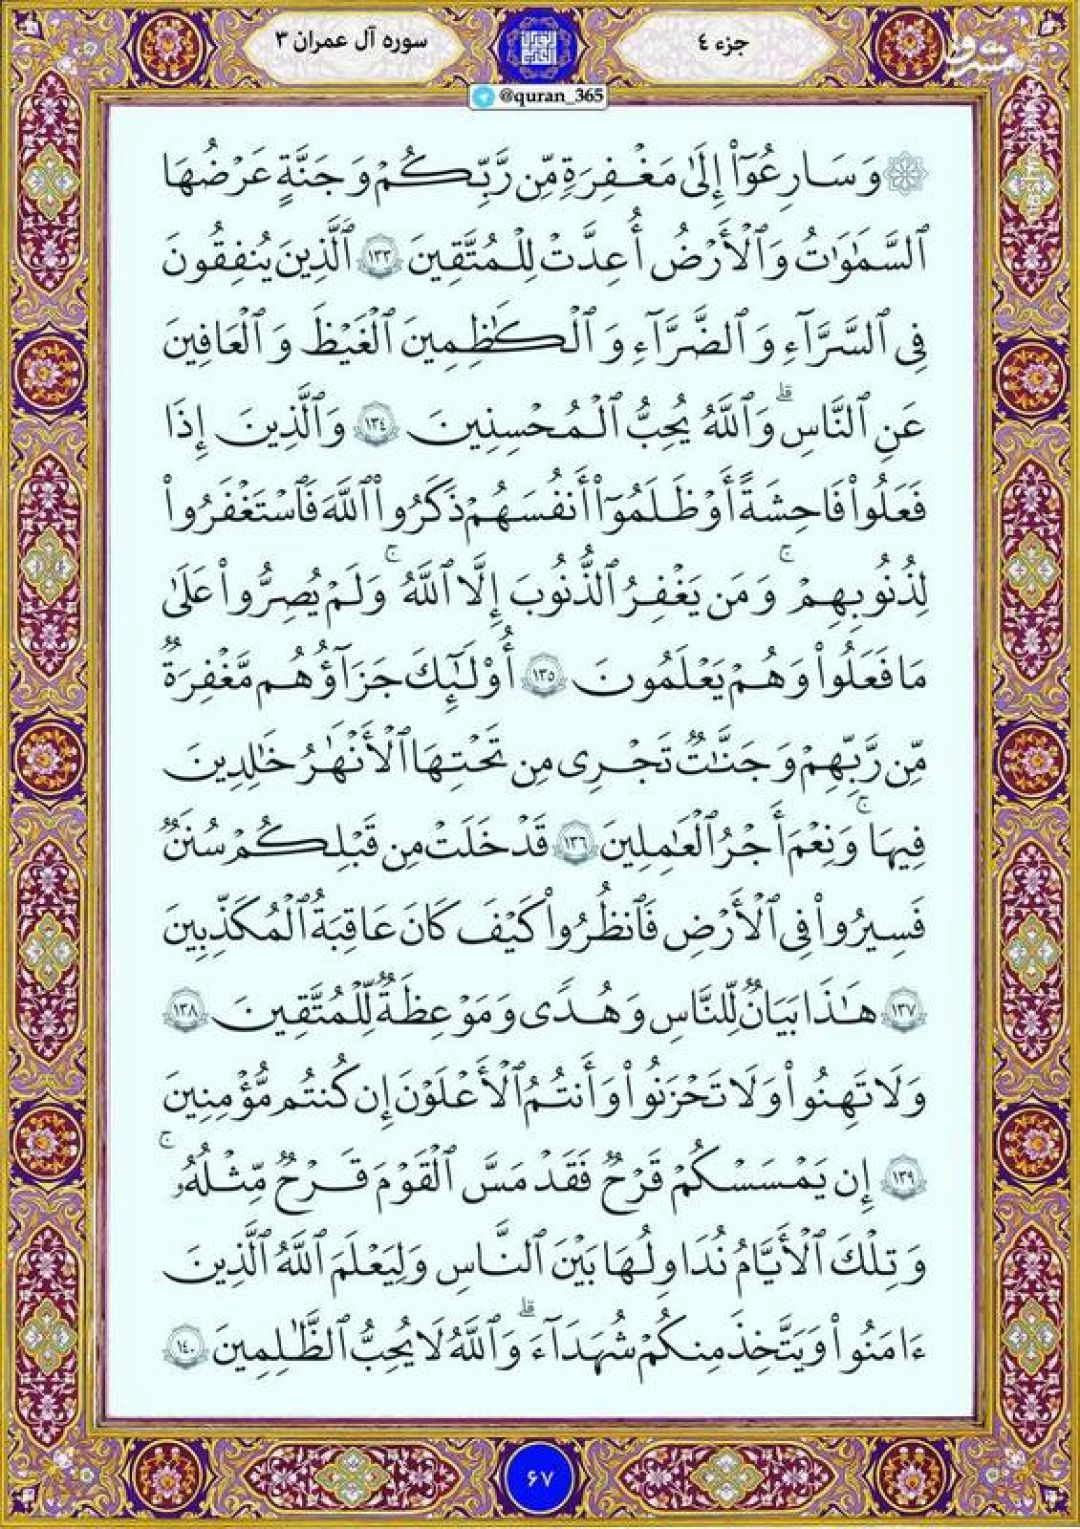 سوره آل عمران ۳
جزء ٤
@quran_365
مشرق
۞ وَسَارِعُوٓا۟ إِلَىٰ مَغْفِرَةٍ مِّن رَّبِّكُمْ وَجَنَّةٍ عَرْضُهَا
ٱلسَّمَٰوَٰتُ وَٱلْأَرْضُ أُعِدَّتْ لِلْمُتَّقِينَ ١٣٣ ٱلَّذِينَ يُنفِقُونَ
فِى ٱلسَّرَّآءِ وَٱلضَّرَّآءِ وَٱلْكَٰظِمِينَ ٱلْغَيْظَ وَٱلْعَافِينَ
عَنِ ٱلنَّاسِ ۗ وَٱللَّهُ يُحِبُّ ٱلْمُحْسِنِينَ ١٣٤ وَٱلَّذِينَ إِذَا
فَعَلُوا۟ فَاحِشَةً أَوْ ظَلَمُوٓا۟ أَنفُسَهُمْ ذَكَرُوا۟ ٱللَّهَ فَٱسْتَغْفَرُوا۟
لِذُنُوبِهِمْ ۚ وَمَن يَغْفِرُ ٱلذُّنُوبَ إِلَّا ٱللَّهُ ۚ وَلَمْ يُصِرُّوا۟ عَلَىٰ
مَا فَعَلُوا۟ وَهُمْ يَعْلَمُونَ ١٣٥ أُو۟لَٰٓئِكَ جَزَآؤُهُم مَّغْفِرَةٌ
مِّن رَّبِّهِمْ وَجَنَّٰتٌ تَجْرِى مِن تَحْتِهَا ٱلْأَنْهَٰرُ خَٰلِدِينَ
فِيهَا ۚ وَنِعْمَ أَجْرُ ٱلْعَٰمِلِينَ ١٣٦ قَدْ خَلَتْ مِن قَبْلِكُمْ سُنَنٌ
فَسِيرُوا۟ فِى ٱلْأَرْضِ فَٱنظُرُوا۟ كَيْفَ كَانَ عَاقِبَةُ ٱلْمُكَذِّبِينَ
١٣٧ هَٰذَا بَيَانٌ لِّلنَّاسِ وَهُدًى وَمَوْعِظَةٌ لِّلْمُتَّقِينَ ١٣٨
وَلَا تَهِنُوا۟ وَلَا تَحْزَنُوا۟ وَأَنتُمُ ٱلْأَعْلَوْنَ إِن كُنتُم مُّؤْمِنِينَ
١٣٩ إِن يَمْسَسْكُمْ قَرْحٌ فَقَدْ مَسَّ ٱلْقَوْمَ قَرْحٌ مِّثْلُهُۥ ۚ
وَتِلْكَ ٱلْأَيَّامُ نُدَاوِلُهَا بَيْنَ ٱلنَّاسِ وَلِيَعْلَمَ ٱللَّهُ ٱلَّذِينَ
ءَامَنُوا۟ وَيَتَّخِذَ مِنكُمْ شُهَدَآءَ ۗ وَٱللَّهُ لَا يُحِبُّ ٱلظَّٰلِمِينَ ١٤٠
۶۷